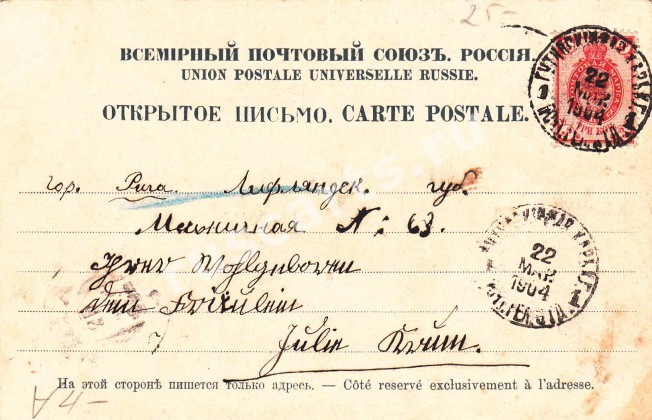 25-
ВСЕМІРНЫЙ ПОЧТОВЫЙ СОЮЗЪ. РОССІЯ.
UNION POSTALE UNIVERSELLE RUSSIE.
ОТКРЫТОЕ ПИСЬМО. CARTE POSTALE.
22
МАР.
1904
гор. Рига. Лифляндск. губ.
Мельничная №: 63.
22
МАР.
1904
Ihrer Wohlgeboren
dem Fräulein
Julie Krum.
На этой сторонѣ пишется только адресъ. — Côté reservé exclusivement à l'adresse.